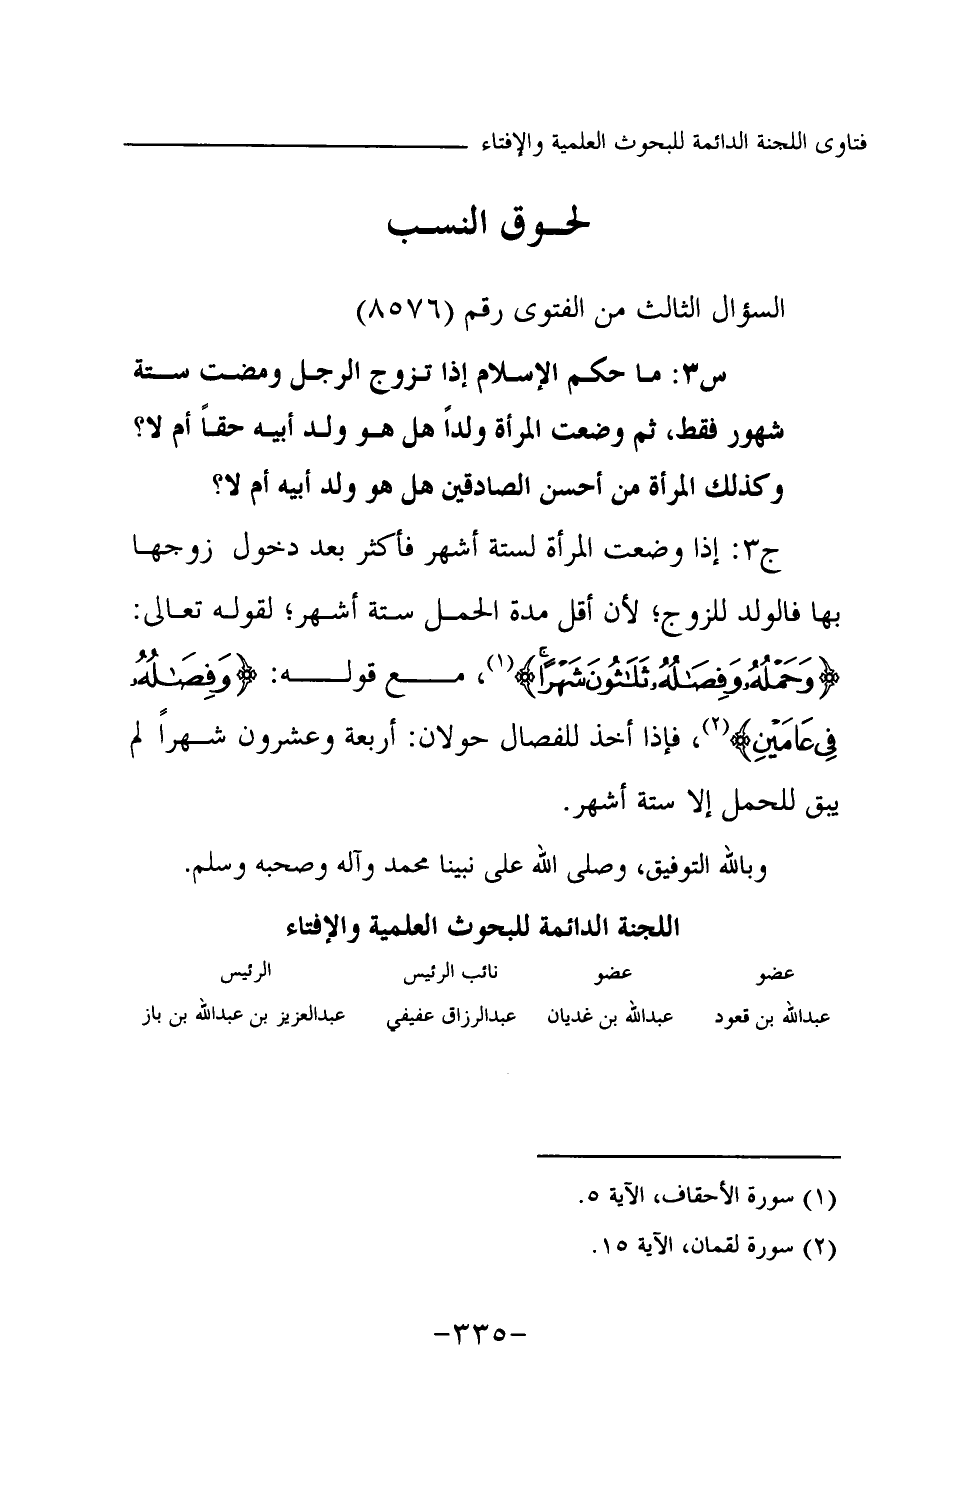 فتاوى اللجنة الدائمة للبحوث العلمية والإفتاء
لحوق النسب
السؤال الثالث من الفتوى رقم (٨٥٧٦)
س٣: ما حكم الإسلام إذا تزوج الرجل ومضت ستة
شهور فقط، ثم وضعت المرأة ولداً هل هو ولد أبيه حقاً أم لا؟
وكذلك المرأة من أحسن الصادقين هل هو ولد أبيه أم لا؟
ج٣: إذا وضعت المرأة لستة أشهر فأكثر بعد دخول زوجها
بها فالولد للزوج؛ لأن أقل مدة الحمل ستة أشهر؛ لقوله تعالى:
﴿وَحَمْلُهُۥ وَفِصَـٰلُهُۥ ثَلَـٰثُونَ شَهْرًا ۚ﴾(١)، مع قوله: ﴿وَفِصَـٰلُهُۥ
فِى عَامَيْنِ﴾(٢)، فإذا أخذ للفصال حولان: أربعة وعشرون شهراً لم
يبق للحمل إلا ستة أشهر.
وبالله التوفيق، وصلى الله على نبينا محمد وآله وصحبه وسلم.
اللجنة الدائمة للبحوث العلمية والإفتاء
عضو عضو نائب الرئيس الرئيس
عبدالله بن قعود عبدالله بن غديان عبدالرزاق عفيفي عبدالعزيز بن عبدالله بن باز
(١) سورة الأحقاف، الآية ٥.
(٢) سورة لقمان، الآية ١٥.
-٣٣٥-